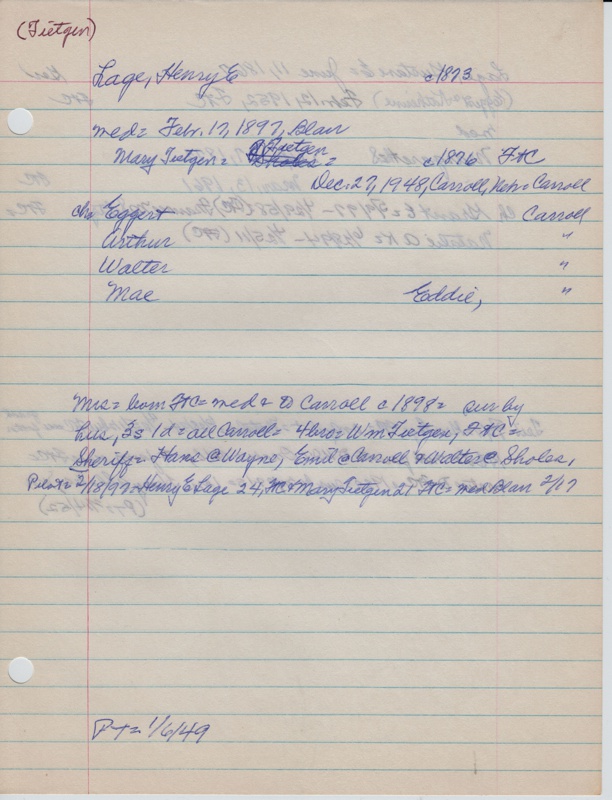 (Tietgen)
Lage, Henry E c1873
med= Feb. 17, 1897, Blair
Mary Tietgen= Tietgen
Sholes= c1876 FtC
Dec. 27, 1948, Carroll, Neb= Carroll
ch: Eggert Carroll
Arthur "
Walter "
Mae Eddie, "
Mrs= born FtC= med & to Carroll c1898= sur by
hus, 3s 1d= all Carroll= 4 bro= Wm Tietgen, FtC=
Sheriff= Hans @ Wayne, Emil @ Carroll & Walter @ Sholes,
Pilot= 2/18/97= Henry E Lage 24, & Mary Tietgen 21 FtC= med Blair 2/17
PT= 1/6/49